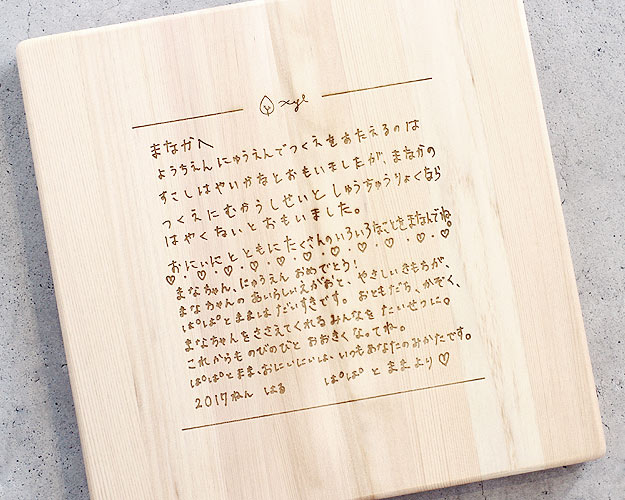 xyl
まなかへ
ようちえんにゅうえんでつくえをあたえるのは
すこしはやいかなとおもいましたが、まなかの
つくえにむかうしせいとしゅうちゅうりょくなら
はやくないとおもいました。
おにいにとともにたくさんのいろいろなことをまなんでね。
♡・♡・♡・♡・♡・♡・♡・♡・♡・♡・♡
まなちゃん、にゅうえんおめでとう!
まなちゃんのあいらしいえがおと、やさしいきもちが、
ぱぱとままはだいすきです。おともだち、かぞく、
まなちゃんをささえてくれるみんなをたいせつに。
これからものびのびとおおきくなってね。
ぱぱとまま、おにいにいは、いつもあなたのみかたです。
2017ねん はる ぱぱとままより♡